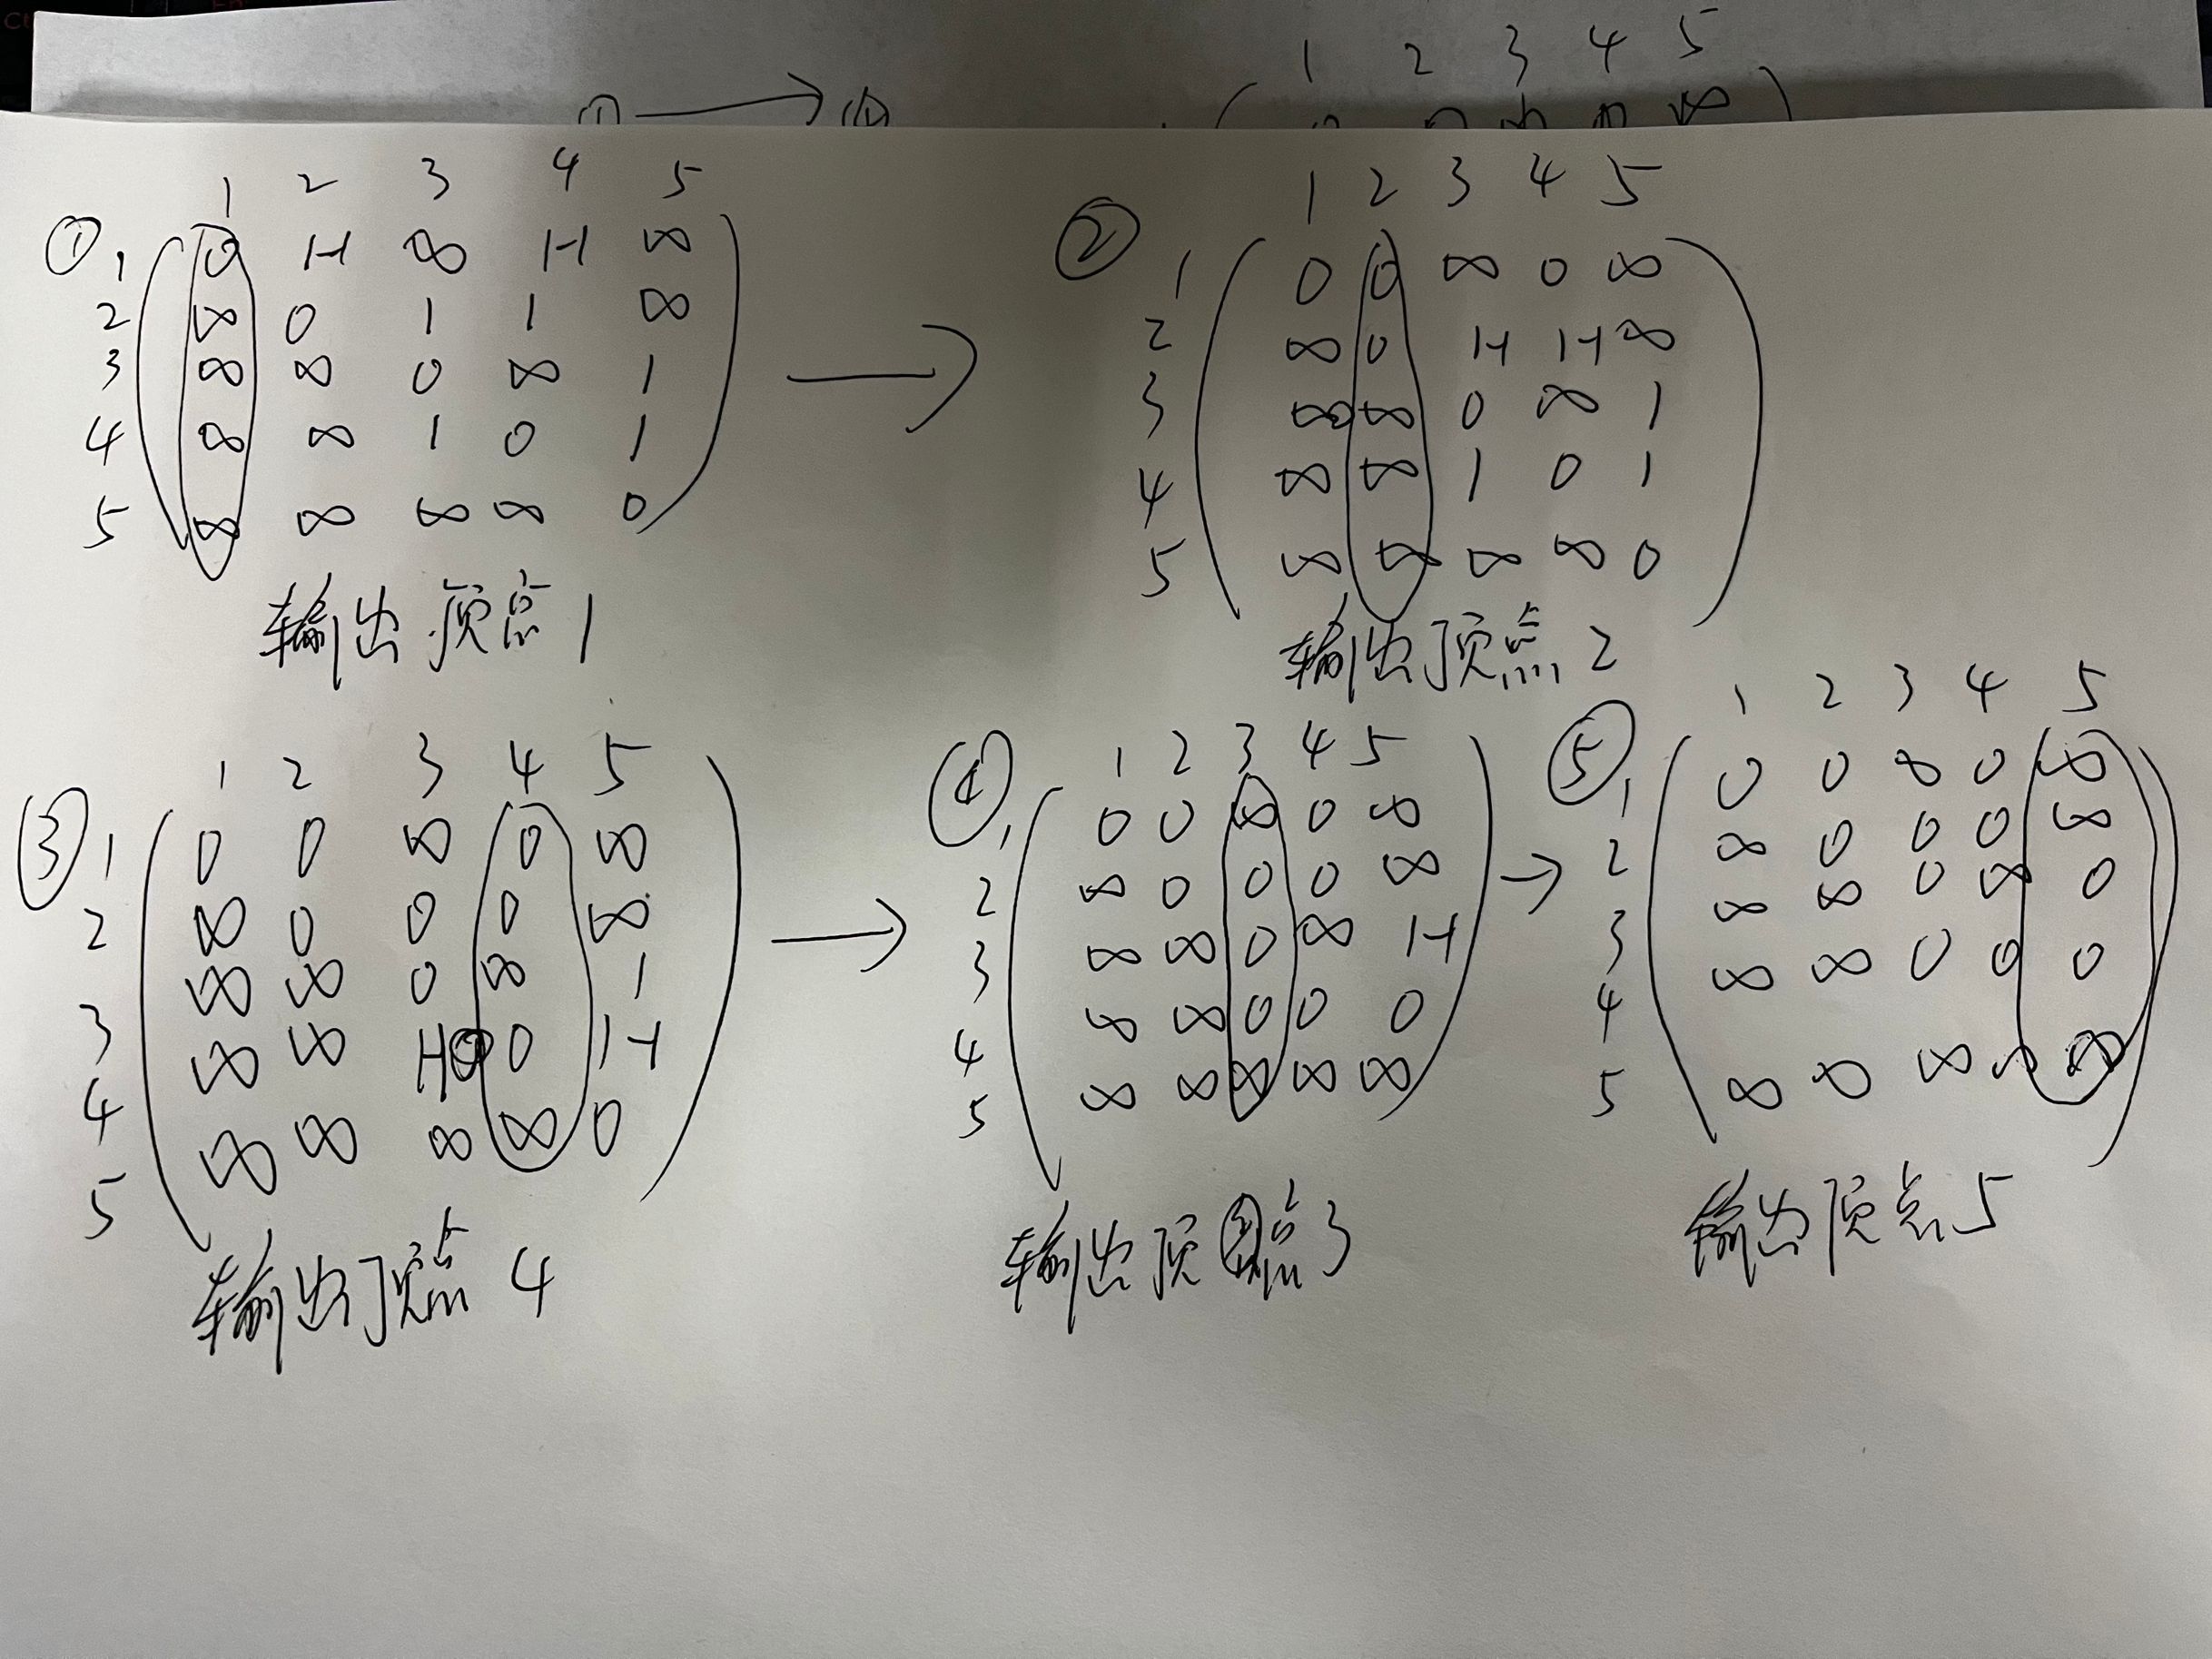 1 2 3 4 5
① → ②
∞
1 2 3 4 5
① 1 0 1-1 ∞ 1-1 ∞
2 ∞ 0 1 1 ∞
3 ∞ ∞ 0 ∞ 1
4 ∞ ∞ 1 0 1
5 ∞ ∞ ∞ ∞ 0
输出顶点1
→
1 2 3 4 5
② 1 0 0 ∞ 0 ∞
2 ∞ 0 1-1 1-1 ∞
3 ∞ ∞ 0 ∞ 1
4 ∞ ∞ 1 0 1
5 ∞ ∞ ∞ ∞ 0
输出顶点2
1 2 3 4 5
③ 1 0 0 ∞ 0 ∞
2 ∞ 0 0 0 ∞
3 ∞ ∞ 0 ∞ 1
4 ∞ ∞ 1-1 0 1-1
5 ∞ ∞ ∞ ∞ 0
输出顶点4
→
1 2 3 4 5
④ 1 0 0 ∞ 0 ∞
2 ∞ 0 0 0 ∞
3 ∞ ∞ 0 ∞ 1-1
4 ∞ ∞ 0 0 0
5 ∞ ∞ ∞ ∞ ∞
输出顶点3
→
1 2 3 4 5
⑤ 1 0 0 ∞ 0 ∞
2 ∞ 0 0 0 ∞
3 ∞ ∞ 0 ∞ 0
4 ∞ ∞ 0 0 0
5 ∞ ∞ ∞ ∞ ∞
输出顶点5